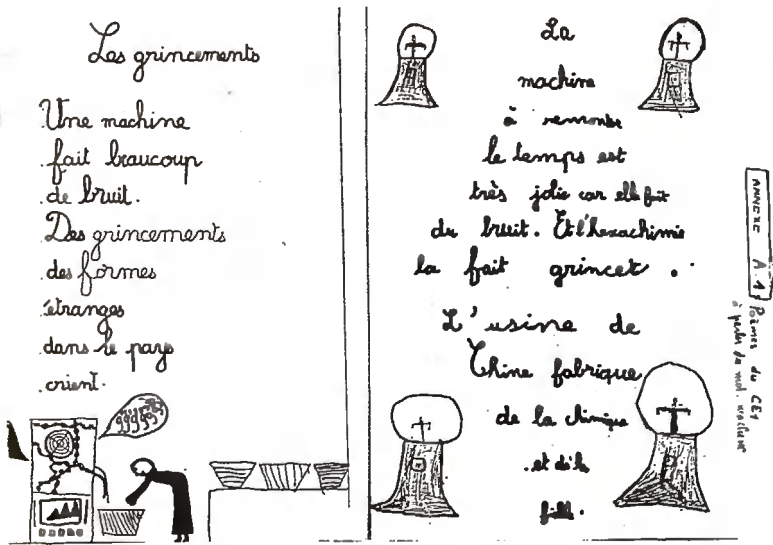 Les grincements
Une machine
fait beaucoup
de bruit.
Des grincements
des formes
étranges
dans le pays
crient.
La
machine
à remonter
le temps est
très jolie car elle fait
du bruit. Et l'hexachimie
la fait grincer.
L'usine de
Chine fabrique
de la chimique
et de la
ANNEXE A.1
Poèmes du CE1
à partir de mot machine